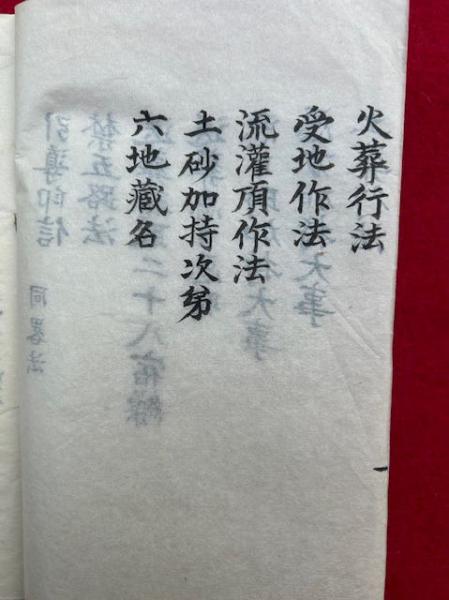 火葬行法
受地作法
流灌頂作法
土砂加持次第
六地蔵名